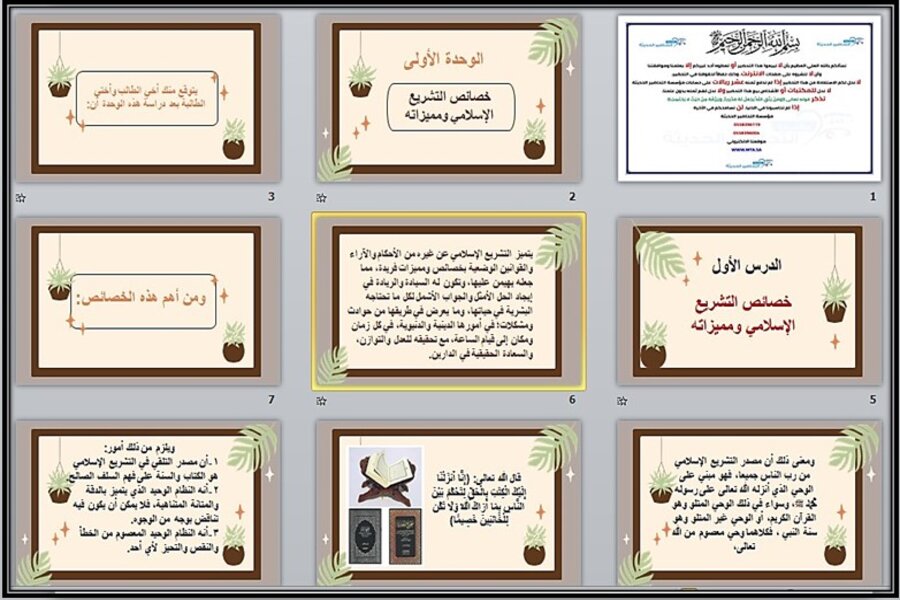 بسم الله الرحمن الرحيم
نسألكم بالله العلي العظيم بأن لا تبيعوا هذا التحضير أو تعطوه أحد غيركم إلا بعلمنا وموافقتنا
وأن لا تنشروه على صفحات الانترنت
مؤسسة التحاضير الحديثة
موقعنا الالكتروني
WWW.MTA.SA
1
الوحدة الأولى
خصائص التشريع
الإسلامي ومميزاته
2
يتوقع منك أخي الطالب وأختي
الطالبة بعد دراسة هذه الوحدة أن:
3
الدرس الأول
خصائص التشريع
الإسلامي ومميزاته
5
يتميز التشريع الإسلامي عن غيره من الأحكام والآراء
والقوانين الوضعية بخصائص ومميزات فريدة، مما
جعله يهيمن عليها، وتكون له السيادة والريادة في
إيجاد الحل الأمثل والجواب الأشمل لكل ما تحتاجه
البشرية في حياتها، وما يعرض في طريقها من حوادث
ومشكلات؛ في أمورها الدينية والدنيوية، في كل زمان
ومكان إلى قيام الساعة، مع تحقيقه للعدل والتوازن،
والسعادة الحقيقية في الدارين.
6
ومن أهم هذه الخصائص:
7
ومعنى ذلك أن مصدر التشريع الإسلامي
من رب الناس جميعا، فهو مبني على
الوحي الذي أنزله الله تعالى على رسوله
محمد ﷺ، وسواء في ذلك الوحي المتلو وهو
القرآن الكريم، أو الوحي غير المتلو وهو
سنة النبي ، فكلاهما وحي معصوم من الله
تعالى،
قال الله تعالى: (إِنَّا أَنْزَلْنَا
إِلَيْكَ الْكِتَابَ بِالْحَقِّ لِتَحْكُمَ بَيْنَ
النَّاسِ بِمَا أَرَاكَ اللَّهُ وَلَا تَكُن
لِّلْخَائِنِينَ خَصِيمًا)
ويلزم من ذلك أمور:
١.أن مصدر التلقي في التشريع الإسلامي
هو الكتاب والسنة على فهم السلف الصالح.
٢.أنه النظام الوحيد الذي يتميز بالدقة
والمتانة المتناهية، فلا يمكن أن يكون فيه
تناقض بوجه من الوجوه.
٣.أنه النظام الوحيد المعصوم من الخطأ
والنقص والتحيز لأي أحد.